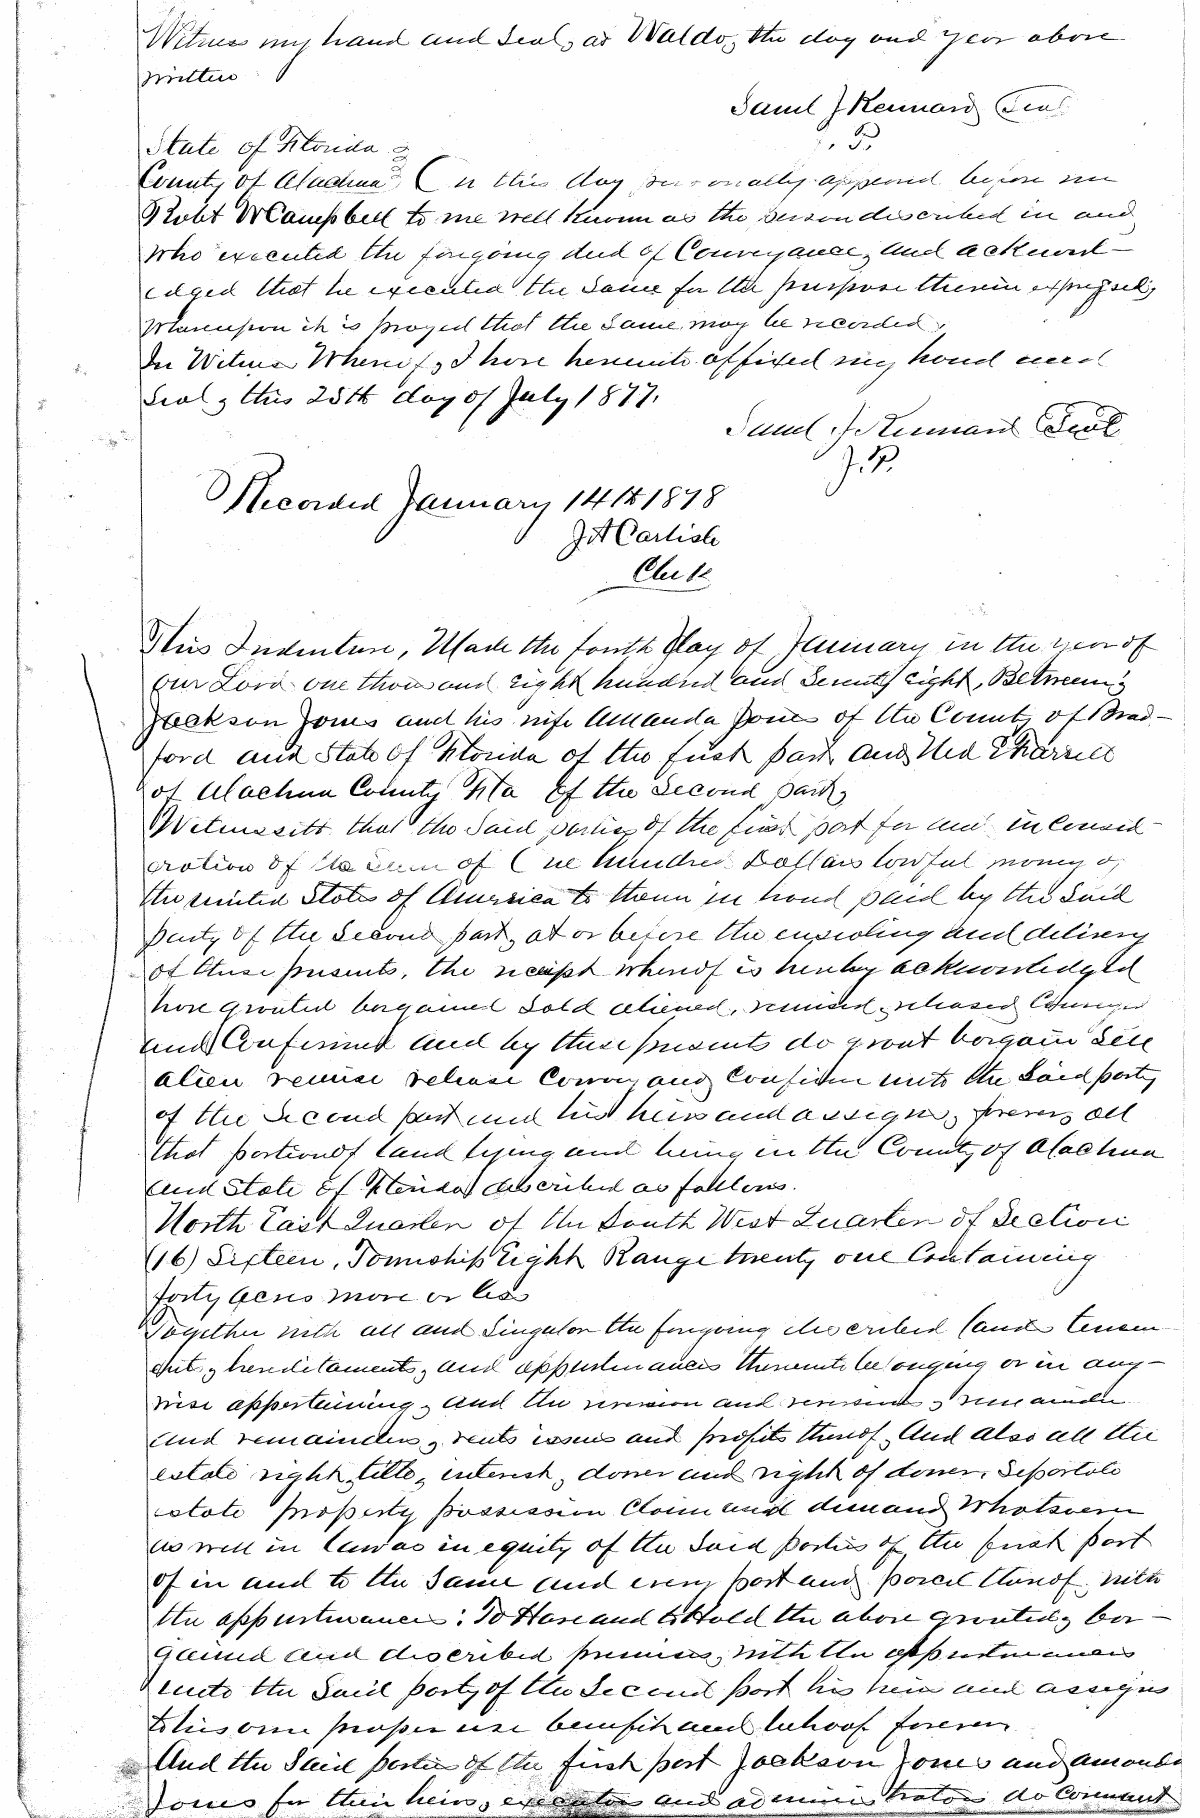 Witness my hand and Seal, at Waldo, the day and year above
written
Saml J Kennard Seal
J. P.
State of Florida
County of Alachua On this day personally appeared before me
Robt W Campbell to me well known as the person described in and
who executed the forgoing deed of Conveyance, and acknowl-
edged that he executed the same for the purpose therein expressed,
Whereupon it is prayed that the same may be recorded,
In Witness Whereof, I have hereunto affixed my hand and
Seal, this 25th day of July 1877.
Saml J. Kennard Seal
J. P.
Recorded January 14th 1878
J A Carlisle
Clerk
This Indenture, Made the fourth Day of January in the year of
our Lord one thousand eight hundred and Seventy eight, Between
Jackson Jones and his wife Amanda Jones of the County of Brad-
ford and State of Florida of the first part and
of Alachua County Fla of the Second part,
Witnesseth that the Said parties of the first part for and in Consid-
eration of the Sum of One hundred Dollars lawful money of
the united States of America to them in hand paid by the Said
party of the Second part, at or before the ensealing and delivery
of these presents, the receipt whereof is hereby acknowledged
have granted bargained Sold aliened, remised, released Conveyed
and Confirmed and by these presents do grant bargain Sell
alien remise release Convey and Confirm unto the Said party
of the Second part and his heirs and assigns, forever, all
that portion of land lying and being in the County of Alachua
and State of Florida described as follows.
North East Quarter of the South West Quarter of Section
(16) Sixteen, Township Eight Range twenty one Containing
forty Acres more or less
Together with all and Singular the forgoing described land tenem-
ents, hereditaments, and appurtenances thereunto belonging or in any-
wise appertaining, and the reversion and reversions, remainder
and remainders, rents issues and profits thereof, And also all the
estate right, title, interest, dower and right of dower, Seperate
estate property possession Claim and demand Whatsoever
as well in law as in equity of the Said parties of the first part
of in and to the Same and every part and parcel thereof with
the appurtenances: To Have and to Hold the above granted, bar-
gained and described premises, with the appurtenances
unto the Said party of the Second part his heirs and assigns
to his own proper use benefit and behoof forever
And the Said parties of the first part Jackson Jones and Amanda
Jones for their heirs, executors and administrators do Covenant